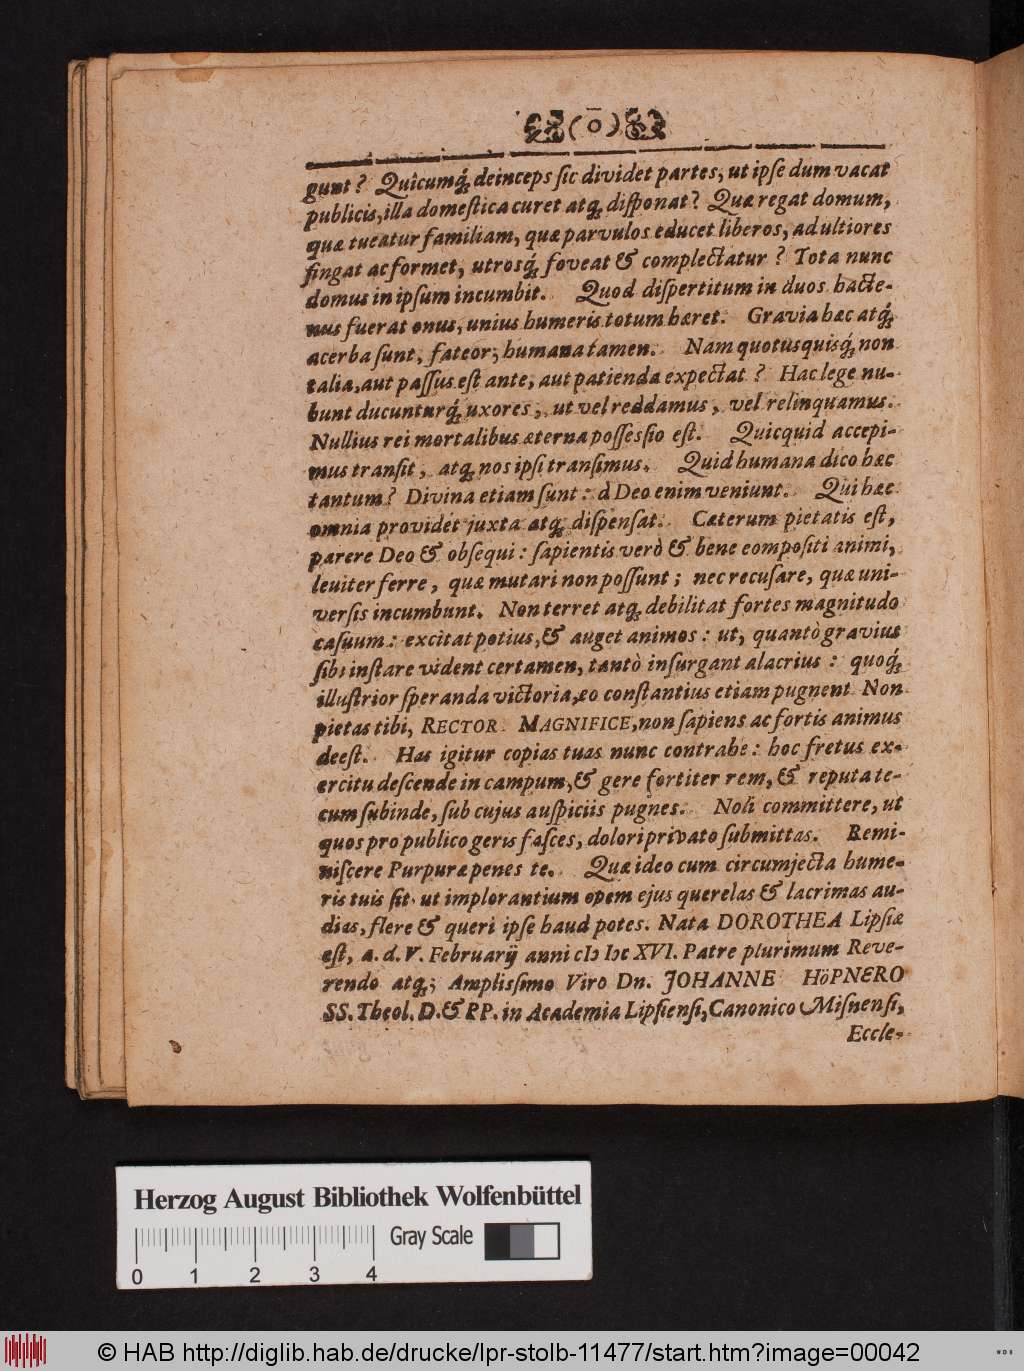 (ō)
gunt? Quicumq́; deinceps ſic dividet partes, ut ipſe dum vacat
publicis, illa domeſtica curet atq; diſponat? Quæ regat domum,
quæ tueatur familiam, quæ parvulos educet liberos, adultiores
fingat ac formet, utrosq́; foveat & complectatur? Tota nunc
domus in ipſum incumbit. Quod diſpertitum in duos hacte-
nus fuerat onus, unius humeris totum hæret. Gravia hæc atq́;
acerba ſunt, fateor; humana tamen. Nam quotusquisq́; non
talia, aut paſſus eſt ante, aut patienda expectat? Hac lege nu-
bunt ducunturq́; uxores, ut vel reddamus, vel relinquamus.
Nullius rei mortalibus æterna poſſeſſio eſt. Quicquid accepi-
mus tranſit, atq; nos ipſi tranſimus. Quid humana dico hæc
tantum? Divina etiam ſunt: à Deo enim veniunt. Qui hæc
omnia providet juxta atq; diſpenſat. Cæterum pietatis eſt,
parere Deo & obſequi: ſapientis verò & bene compoſiti animi,
leuiter ferre, quæ mutari non poſſunt; nec recuſare, quæ uni-
verſis incumbunt. Non terret atq; debilitat fortes magnitudo
caſuum: excitat potius, & auget animos: ut, quantò gravius
ſibi inſtare vident certamen, tantò inſurgant alacrius: quoq́;
illuſtrior ſperanda victoria, eo conſtantius etiam pugnent Non
pietas tibi, RECTOR MAGNIFICE, non ſapiens ac fortis animus
deeſt. Has igitur copias tuas nunc contrahe: hoc fretus ex-
ercitu deſcende in campum, & gere fortiter rem, & reputa te-
cum ſubinde, ſub cujus auſpiciis pugnes. Noli committere, ut
quos pro publico geris faſces, dolori privato ſubmittas. Remi-
niſcere Purpuræ penes te. Quæ ideo cum circumjecta hume-
ris tuis ſit, ut implorantium opem ejus querelas & lacrimas au-
dias, flere & queri ipſe haud potes. Nata DOROTHEA Lipſiæ
eſt, a. d. V. Februarij anni cIɔ Iɔc XVI. Patre plurimum Reve-
rendo atq; Ampliſſimo Viro Dn. JOHANNE HöPNERO
SS. Theol. D. & PP. in Academia Lipſienſi, Canonico Miſnenſi,
Eccle-
Herzog August Bibliothek Wolfenbüttel
Gray Scale
0 1 2 3 4
© HAB http://diglib.hab.de/drucke/lpr-stolb-11477/start.htm?image=00042
WDB